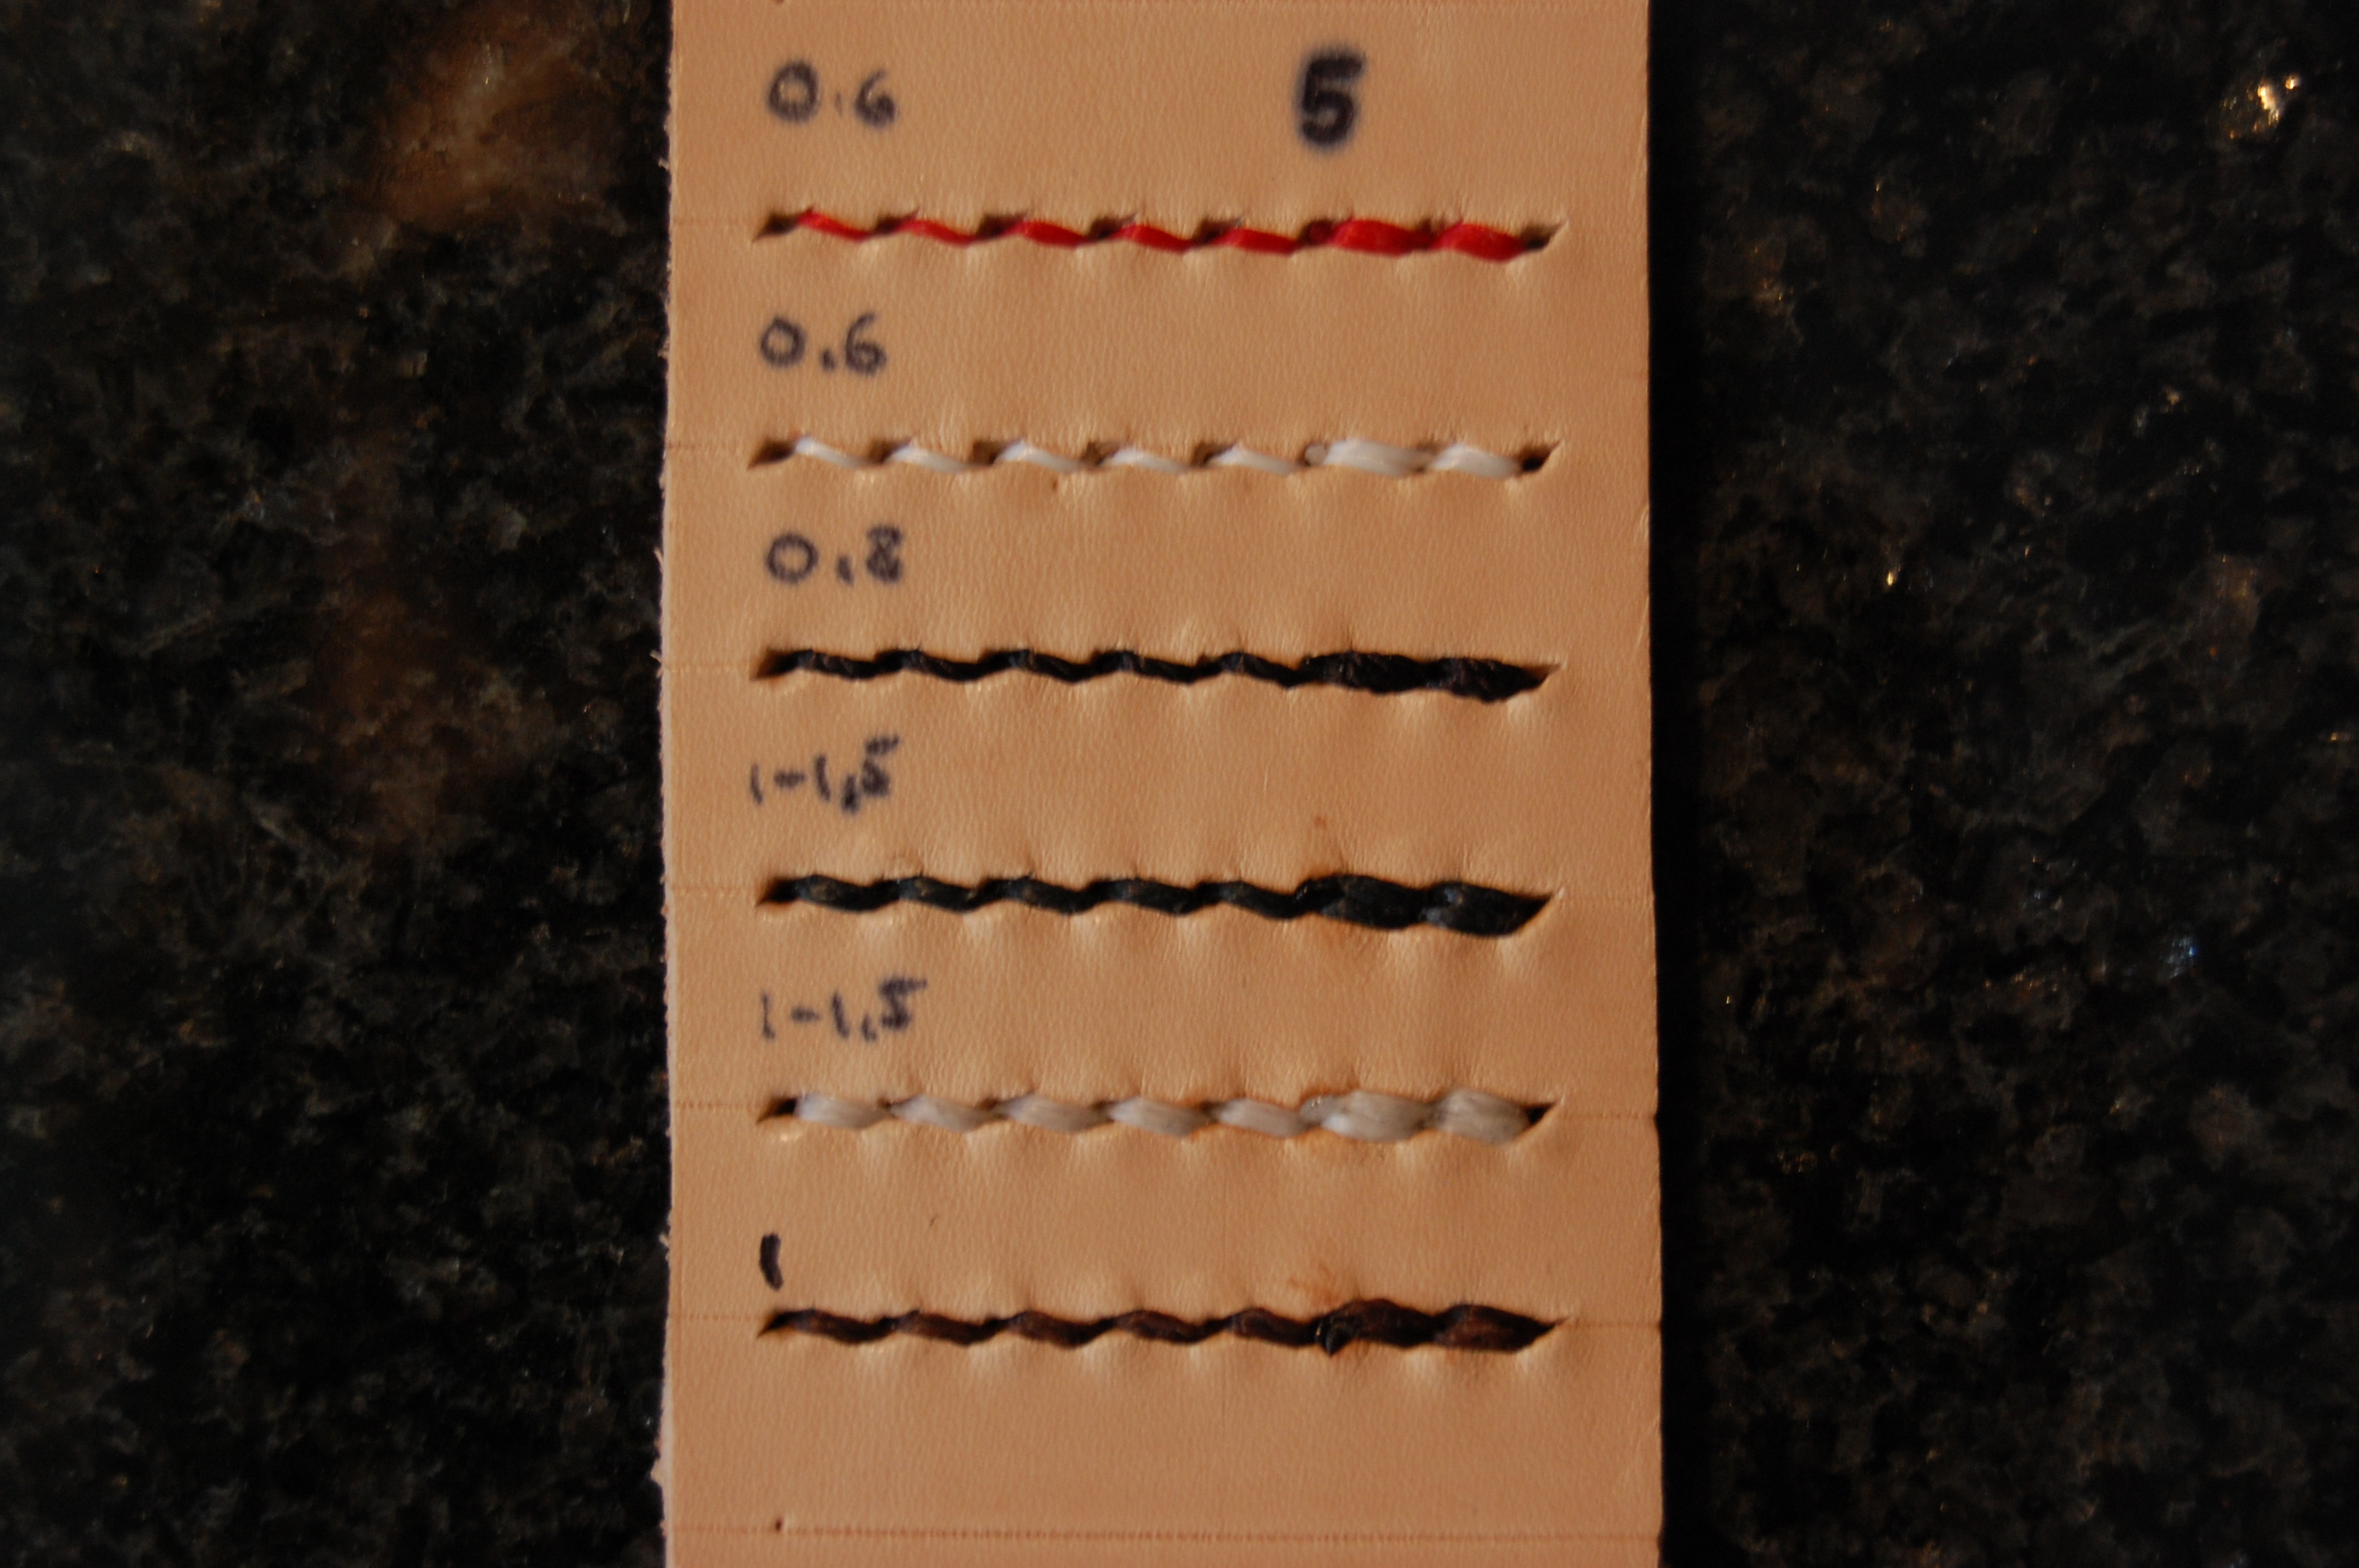 0.6 5
0.6
0.8
1-1,5
1-1,5
1